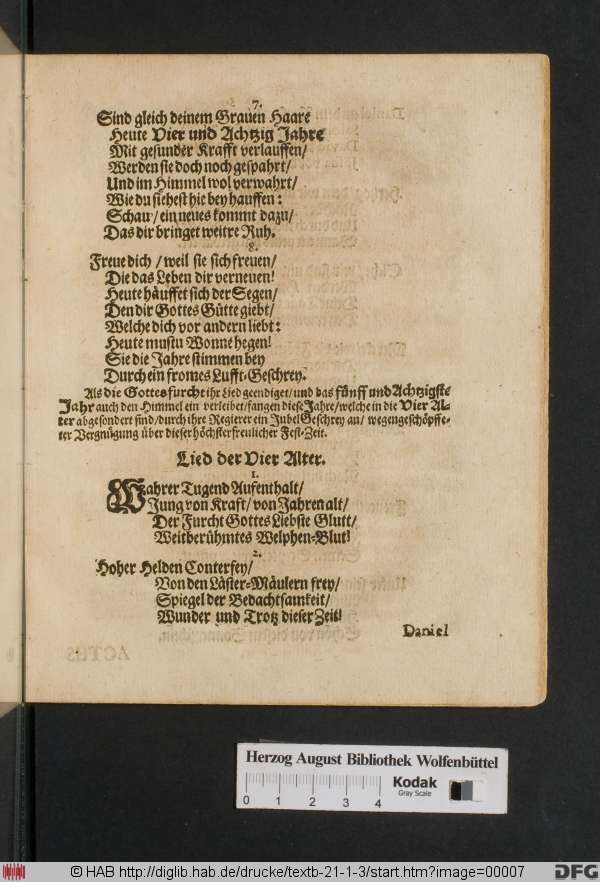 7.
Sind gleich deinem Grauen Haare
Heute Vier und Achtzig Jahre
Mit gesunder Krafft verlauffen/
Werden sie doch noch gespahrt/
Und im Himmel wol verwahrt/
Wie du siehest hie bey hauffen:
Schau/ ein neues kommt dazu/
Das dir bringet weitre Ruh.
8.
Freue dich / weil sie sich freuen/
Die das Leben dir verneuen!
Heute häuffet sich der Segen/
Den dir Gottes Gütte giebt/
Welche dich vor andern liebt:
Heute mustu Wonne hegen!
Sie die Jahre stimmen bey
Durch ein fromes Lufft-Geschrey.
Als die Gottesfurcht ihr Lied geendiget/ und das fünff und Achtzigste
Jahr auch den Himmel ein verleibet/ fangen diese Jahre/ welche in die Vier Al-
ter abgesondert sind/ durch ihre Regierer ein Jubel Geschrey an/ wegen geschöpffe-
ter Vergnügung über dieser höchsterfreulicher Fest-Zeit.
Lied der Vier Alter.
1.
Wahrer Tugend Aufenthalt/
Jung von Kraft/ von Jahren alt/
Der Furcht Gottes Liebste Glutt/
Weitberühmtes Welphen-Blut!
2.
Hoher Helden Conterfey/
Von den Läster-Mäulern frey/
Spiegel der Bedachtsamkeit/
Wunder und Trotz dieser Zeit!
Daniel
Herzog August Bibliothek Wolfenbüttel
0 1 2 3 4
Kodak
Gray Scale
© HAB http://diglib.hab.de/drucke/textb-21-1-3/start.htm?image=00007
DFG